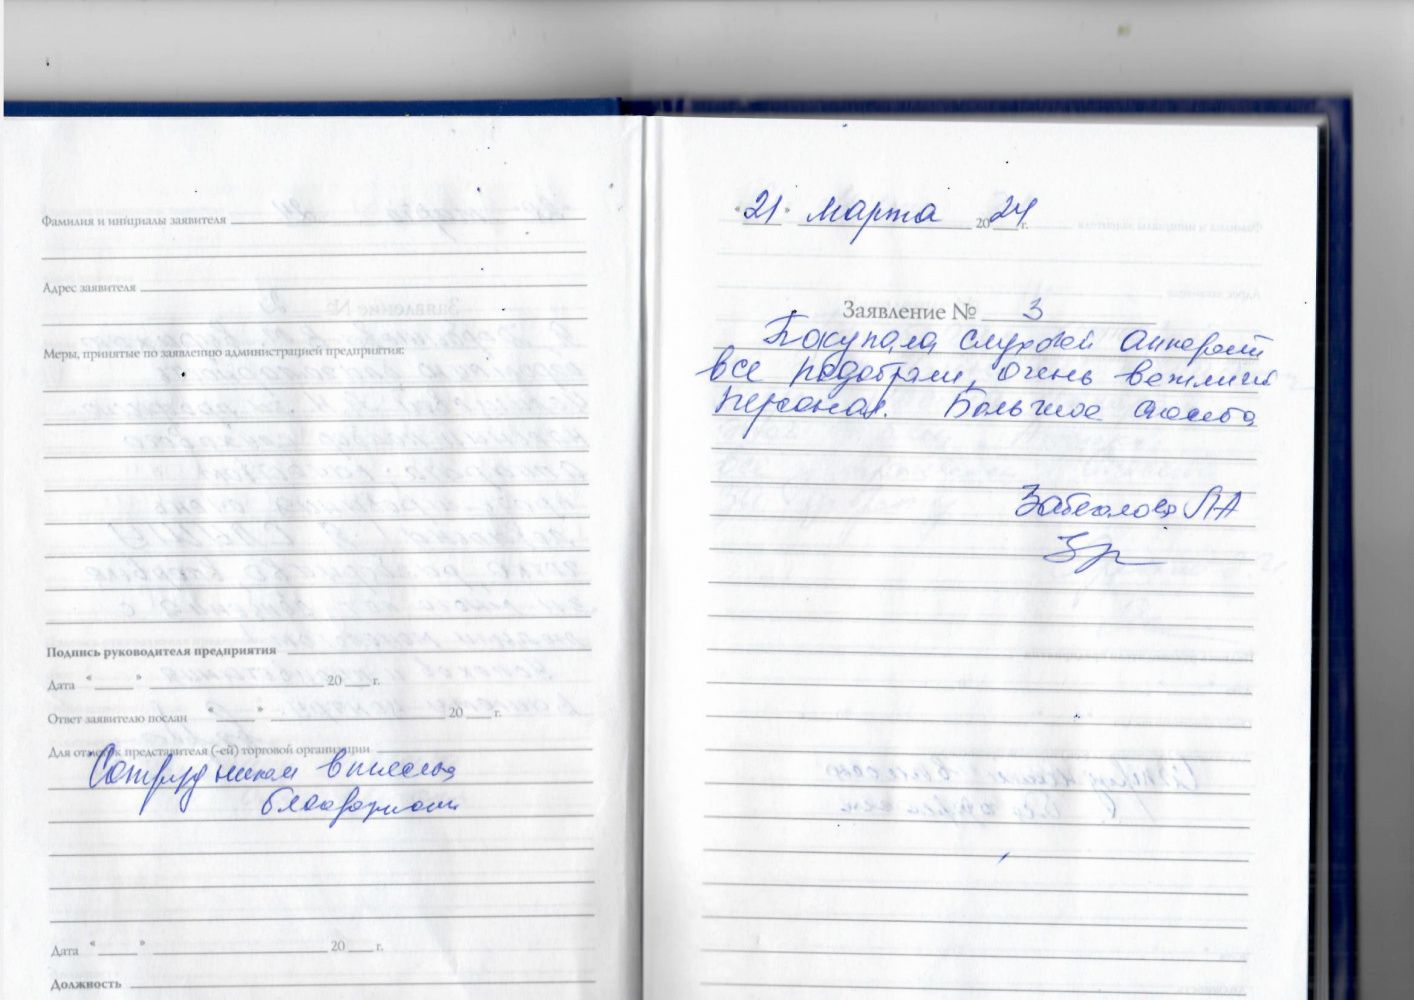 Фамилия и инициалы заявителя
Адрес заявителя
Меры, принятые по заявлению администрацией предприятия:
Подпись руководителя предприятия
Дата " " 20 г.
Ответ заявителю послан " " 20 г.
Для отметок представителя (-ей) торговой организации
Сотрудникам вынесена
благодарность
Дата " " 20 г.
Должность
"21" марта 2024 г.
Заявление № 3
Покупала слуховой аппарат
все подобрали, очень вежливый
персонал. Большое спасибо
ЛА